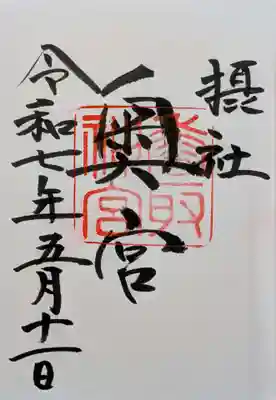 摂社
奥宮
令和七年五月十一日
香取神宮